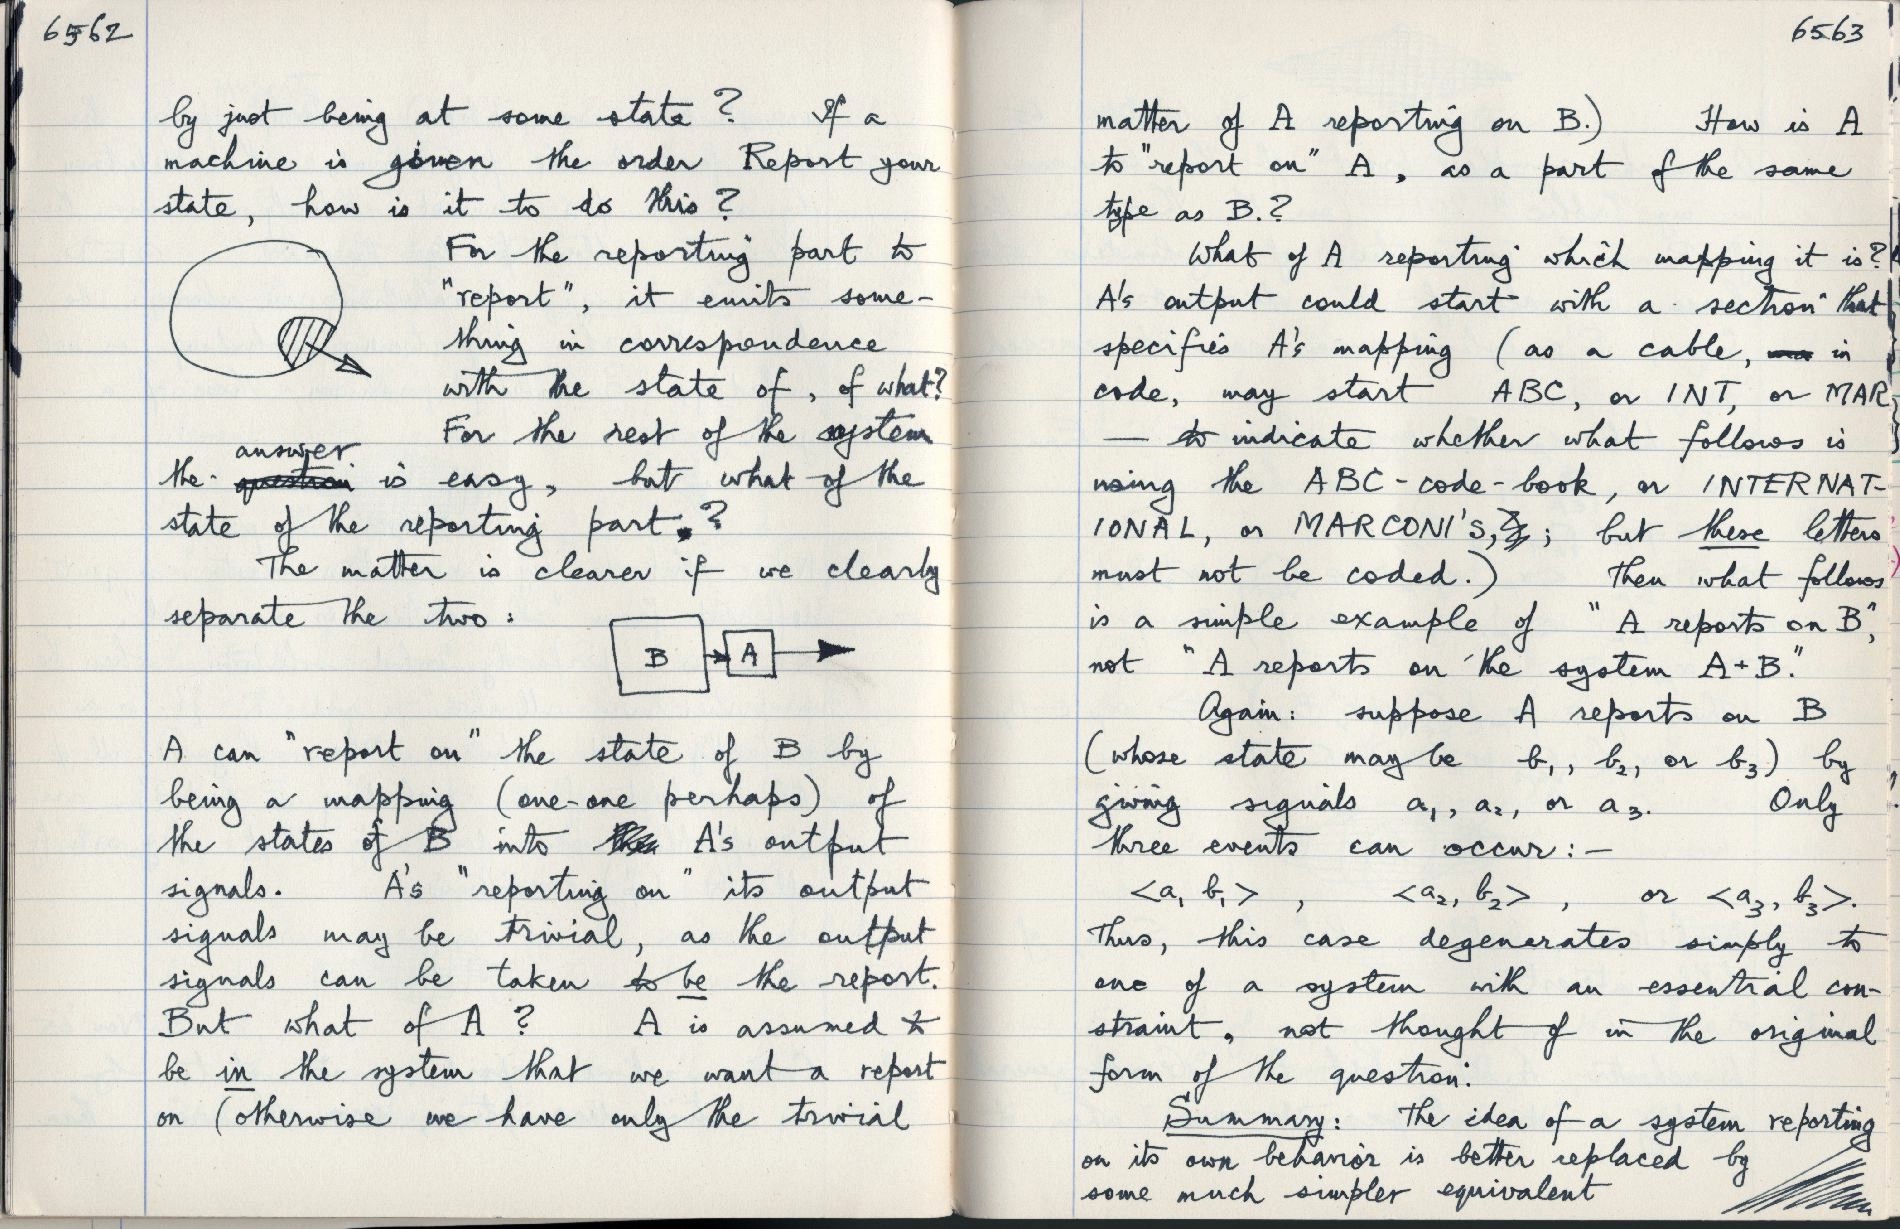 6562
by just being at some state? If a
machine is given the order Report your
state, how is it to do this?
For the reporting part to
"report", it emits some-
thing in correspondence
with the state of, of what?
For the rest of the system
answer
the question is easy, but what of the
state of the reporting part.?
The matter is clearer if we clearly
separate the two:
B A
A can "report on" the state of B by
being a mapping (one-one perhaps) of
the states of B into A's output
signals. A's "reporting on" its output
signals may be trivial, as the output
signals can be taken to be the report.
But what of A? A is assumed to
be in the system that we want a report
on (otherwise we have only the trivial
6563
matter of A reporting on B.) How is A
to "report on" A, as a part of the same
type as B.?
What of A reporting which mapping it is?
A's output could start with a section that
specifies A's mapping (as a cable, in
code, may start ABC, or INT, or MAR,
— to indicate whether what follows is
using the ABC-code-book, or INTERNAT-
IONAL, or MARCONI'S, ; but these letters
must not be coded.) Then what follows
is a simple example of "A reports on B",
not "A reports on the system A+B."
Again: suppose A reports on B
(whose state may be b₁, b₂, or b₃) by
giving signals a₁, a₂, or a₃. Only
three events can occur:—
<a₁ b₁>, <a₂, b₂>, or <a₃, b₃>.
Thus, this case degenerates simply to
one of a system with an essential con-
straint, not thought of in the original
form of the question.
Summary: The idea of a system reporting
on its own behavior is better replaced by
some much simpler equivalent